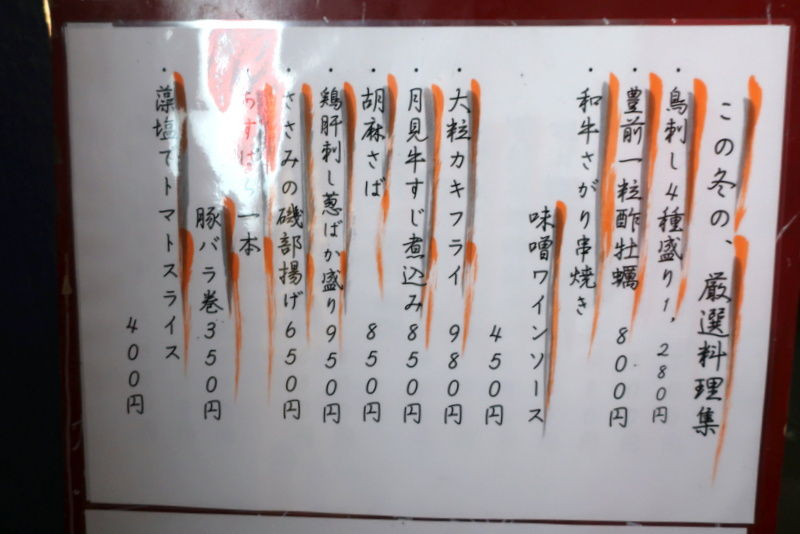 この冬の、厳選料理集
・鳥刺し4種盛り1,280円
・豊前一粒酢牡蠣 800円
・和牛さがり串焼き
味噌ワインソース
450円
・大粒カキフライ 980円
・月見牛すじ煮込み 850円
・胡麻さば 850円
・鶏肝刺し葱ばか盛り 950円
・ささみの磯部揚げ 650円
・あすぱら一本
豚バラ巻 350円
・藻塩でトマトスライス
400円